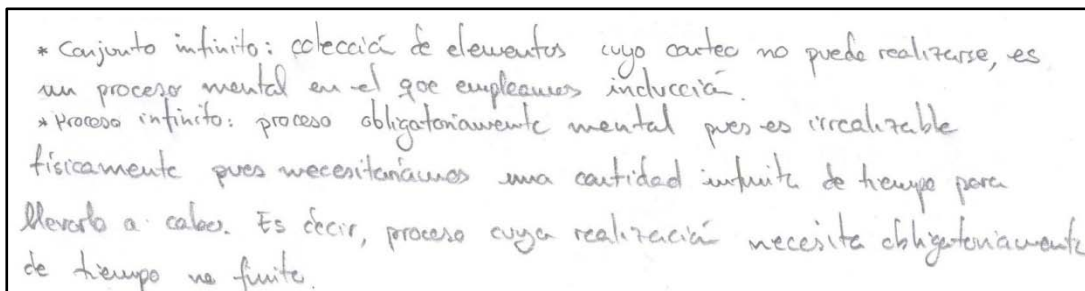 * Conjunto infinito: colección de elementos cuyo conteo no puede realizarse, es
un proceso mental en el que empleamos inducción.
* Proceso infinito: proceso obligatoriamente mental pues es irrealizable
físicamente pues necesitaríamos una cantidad infinita de tiempo para
llevarlo a cabo. Es decir, proceso cuya realización necesita obligatoriamente
de tiempo no finito.